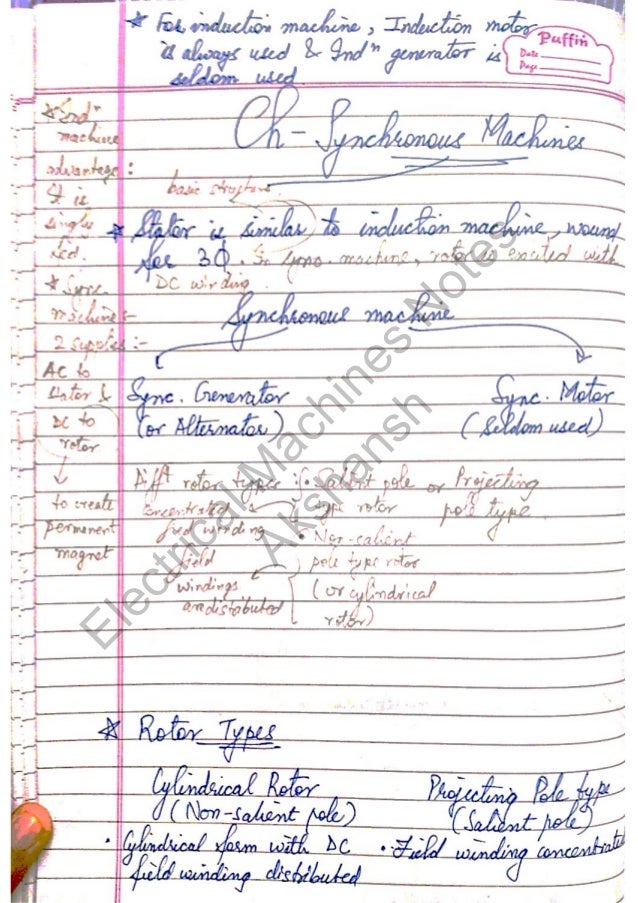 * For induction machine, Induction motor
is always used & Indⁿ generator is
seldom used
Puffin
Date
Page
Ch - Synchronous Machines
* Indⁿ
machine
advantage :
It is
singly
fed.
* Sync.
machine -
2 supplies :-
AC to
stator &
DC to
rotor
↓
to create
permanent
magnet
basic structure.
* Stator is similar to induction machine, wound
for 3Φ. In sync. machine, rotor is excited with
DC winding.
Synchronous machine
Sync. Generator
(or Alternator)
Sync. Motor
(Seldom used)
Diffᵗ rotor types : • Salient pole or Projecting
concentrated type rotor pole type.
field winding • Non-salient
field pole type rotor
windings (or cylindrical
are distributed rotor)
* Rotor Types
Cylindrical Rotor
(Non-salient pole)
• Cylindrical form with DC
field winding distributed
Projecting Pole type
(Salient pole)
• Field winding concentrated
Electrical Machines Notes
Akshansh